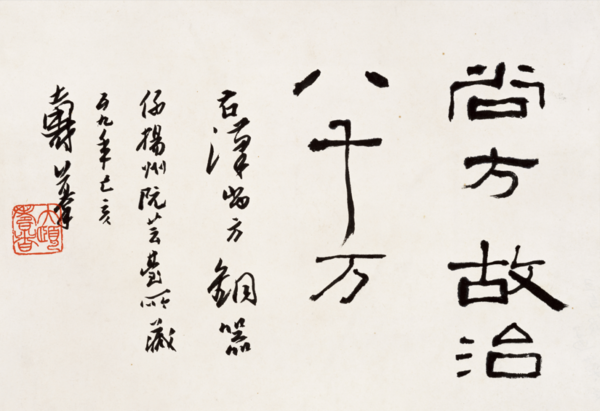 尚方故治
八千万
右漢尚方銅器
係揚州阮芸臺所藏
五九年己亥
壽